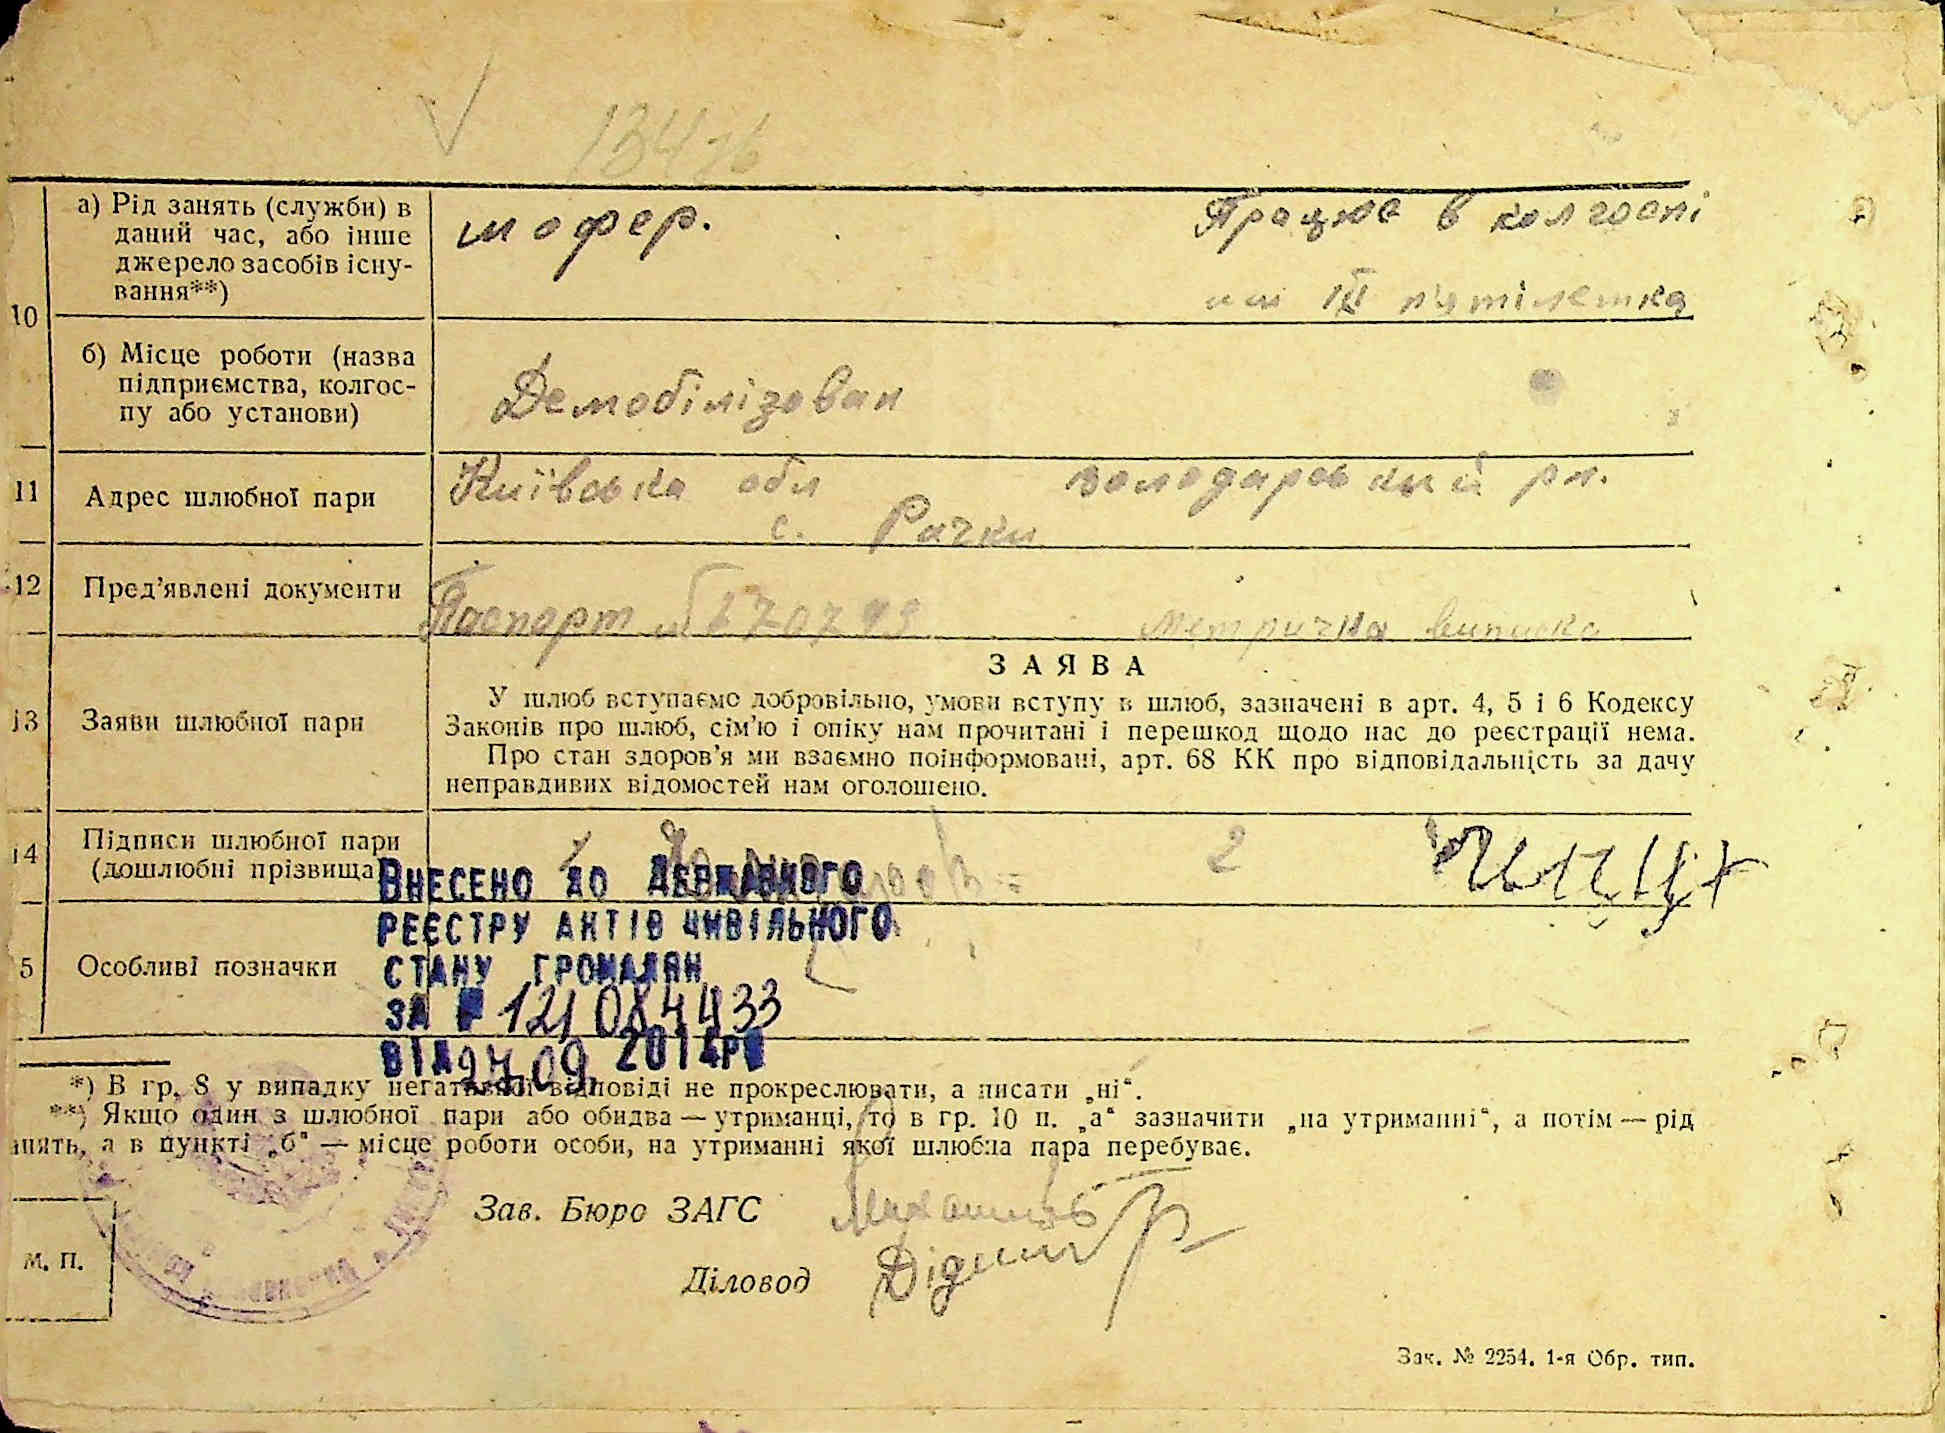 10
а) Рід занять (служби) в
даний час, або інше
джерело засобів існу-
вання**)
шофер.
Працює в колгоспі
ім ІІІ пятілетка
б) Місце роботи (назва
підприємства, колгос-
пу або установи)
Демобілізован
11
Адрес шлюбної пари
Київська обл володарський рн.
с. Рачки
12
Пред’явлені документи
Паспорт
метрична виписка
13
Заяви шлюбної пари
ЗАЯВА
У шлюб вступаємо добровільно, умови вступу в шлюб, зазначені в арт. 4, 5 і 6 Кодексу
Законів про шлюб, сім’ю і опіку нам прочитані і перешкод щодо нас до реєстрації нема.
Про стан здоров’я ми взаємно поінформовані, арт. 68 КК про відповідальність за дачу
неправдивих відомостей нам оголошено.
14
Підписи шлюбної пари
(дошлюбні прізвища
2
5
Особливі позначки
ВНЕСЕНО ДО ДЕРЖАВНОГО
РЕЄСТРУ АКТІВ ЦИВІЛЬНОГО
СТАНУ ГРОМАДЯН
ЗА № 121 084433
ВІД 27.09. 2014РО
*) В гр. 8 у випадку негативної відповіді не прокреслювати, а писати „ні“.
**) Якщо один з шлюбної пари або обидва — утриманці, то в гр. 10 п. „а“ зазначити „на утриманні“, а потім — рід
нять, а в пункті „б“ — місце роботи особи, на утриманні якої шлюбна пара перебуває.
Зав. Бюро ЗАГС
Діловод
М. П.
Зак. № 2254. 1-я Обр. тип.